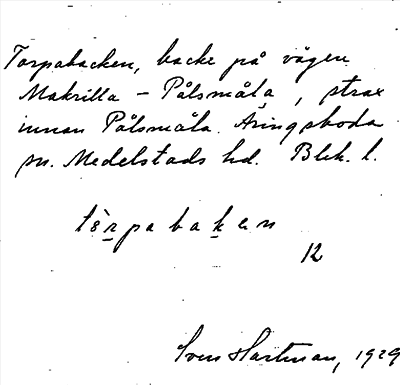 Torpabacken, backe på vägen
Makrilla - Pålsmåla, strax
innan Pålsmåla. Åringsboda
sn. Medelstads hd. Blek. l.
tèrpabaken
12
Sven Hartman, 1929